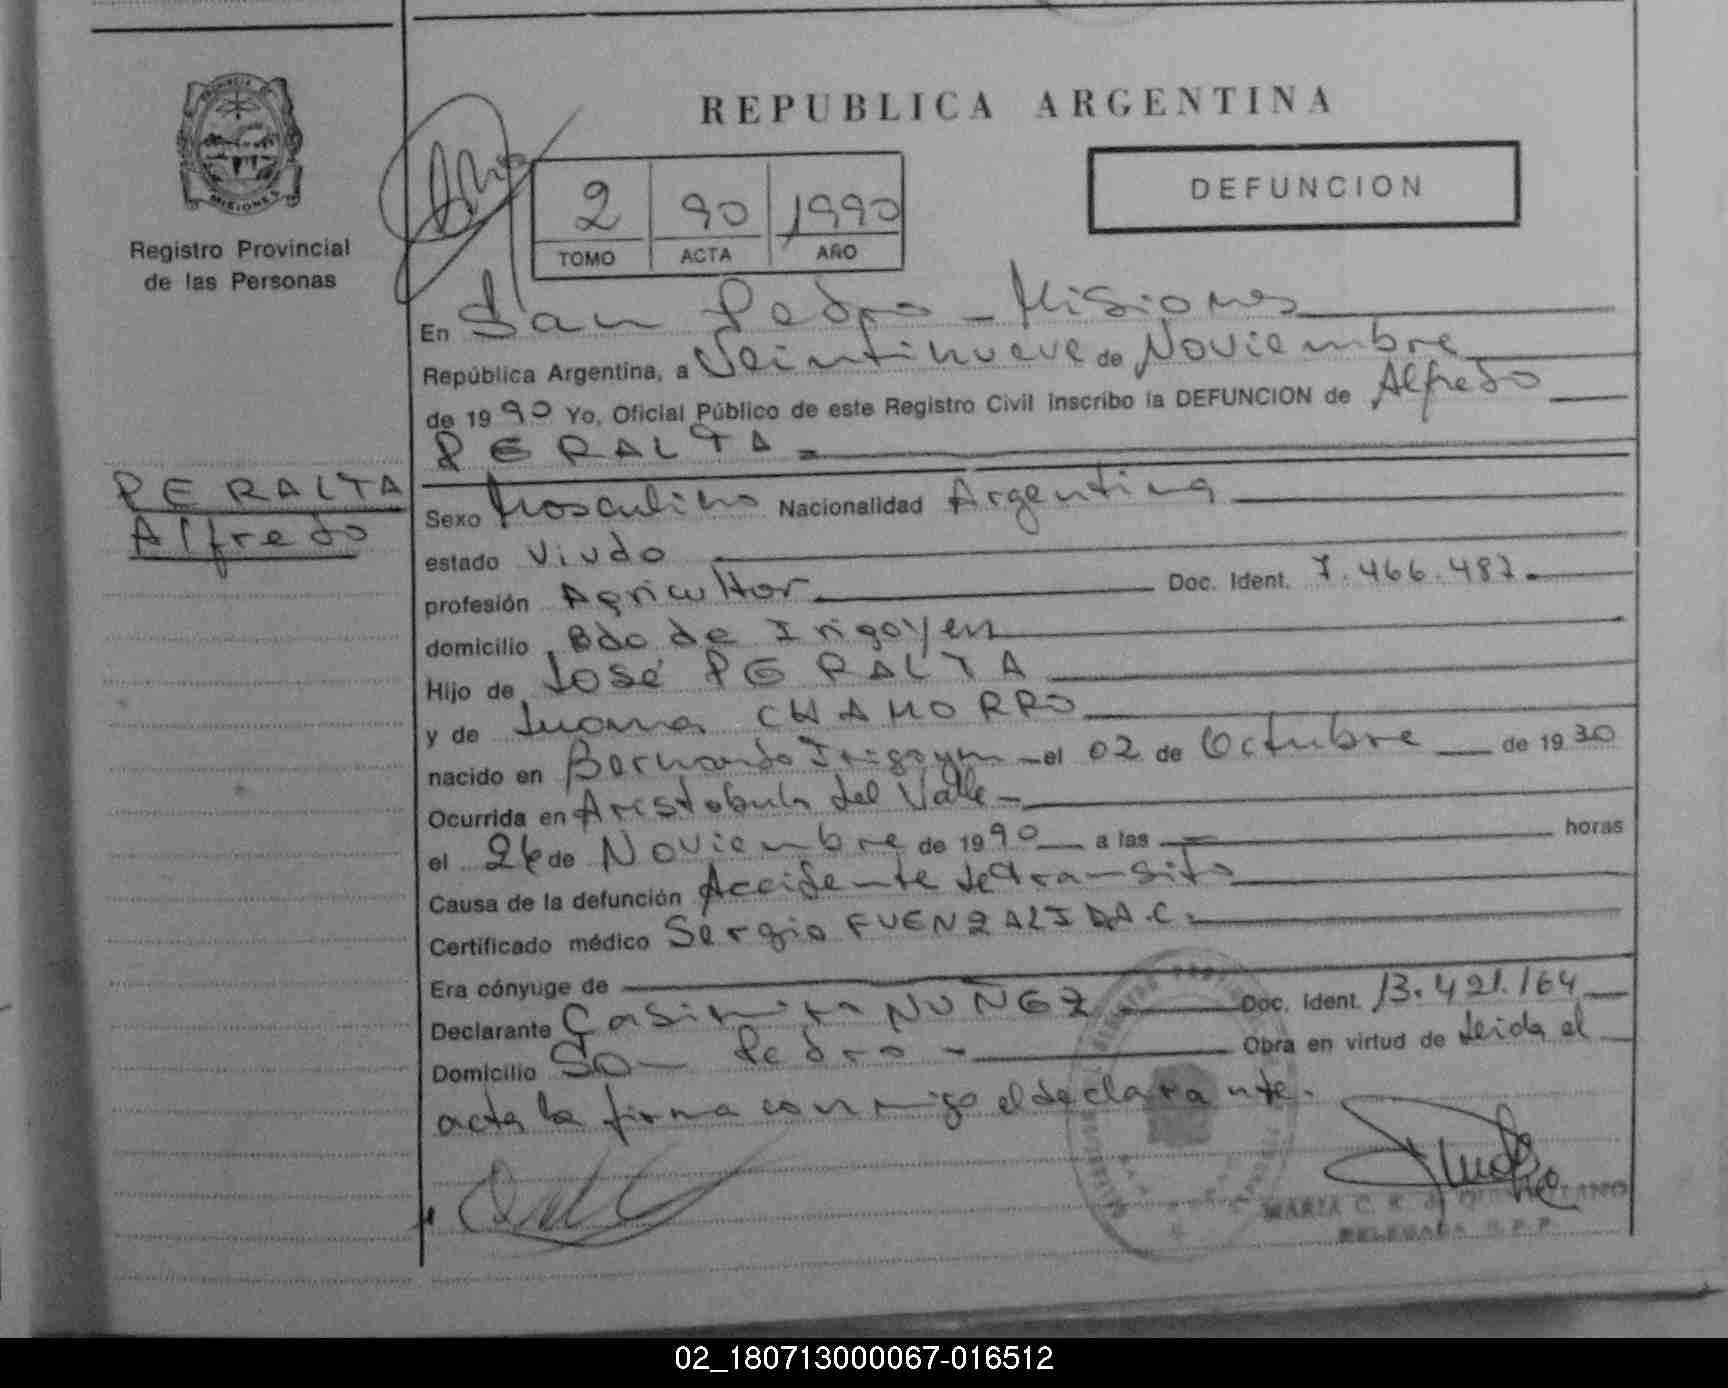 REPUBLICA ARGENTINA
PROVINCIA DE
MISIONES
Registro Provincial
de las Personas
2 90 1990
TOMO ACTA AÑO
DEFUNCION
En San Pedro - Misiones
República Argentina, a Veintinueve de Noviembre
de 1990 Yo, Oficial Público de este Registro Civil inscribo la DEFUNCION de Alfredo
PERALTA
PERALTA
Alfredo
Sexo Masculino Nacionalidad Argentina
estado Viudo
profesión Agricultor Doc. Ident. 7.466.487.
domicilio Bdo de Irigoyen
Hijo de José PERALTA
y de Juana CHAMORRO
nacido en Bernardo Irigoyen el 02 de Octubre de 1930
Ocurrida en Aristobulo del Valle
el 26 de Noviembre de 1990 a las horas
Causa de la defunción Accidente de transito
Certificado médico Sergio FUENZALIDA.C.
Era cónyuge de
Declarante Casimiro NUÑEZ Doc. Ident. 13.421.164
Domicilio San Pedro - Obra en virtud de Leida el
acta la firma conmigo el declarante.
MARIA C. R. de
DELEGADA R.P.P.
02_180713000067-016512